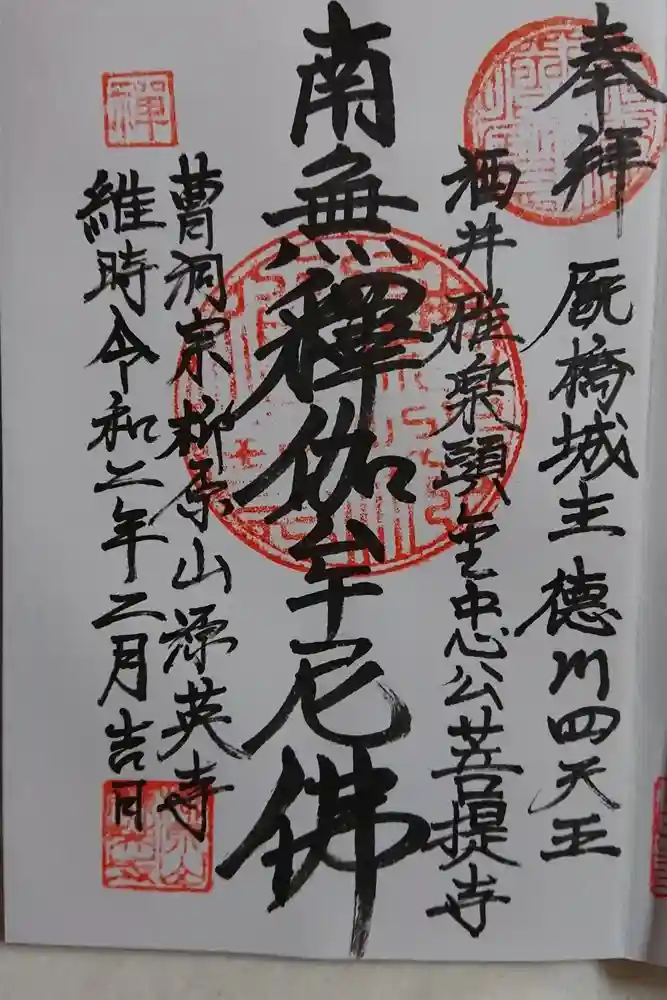 奉拝
厩橋城主 徳川四天王
酒井雅楽頭重忠公菩提寺
南無釋伽牟尼佛
曹洞宗柳原山源英寺
禪
維時令和二年二月吉日